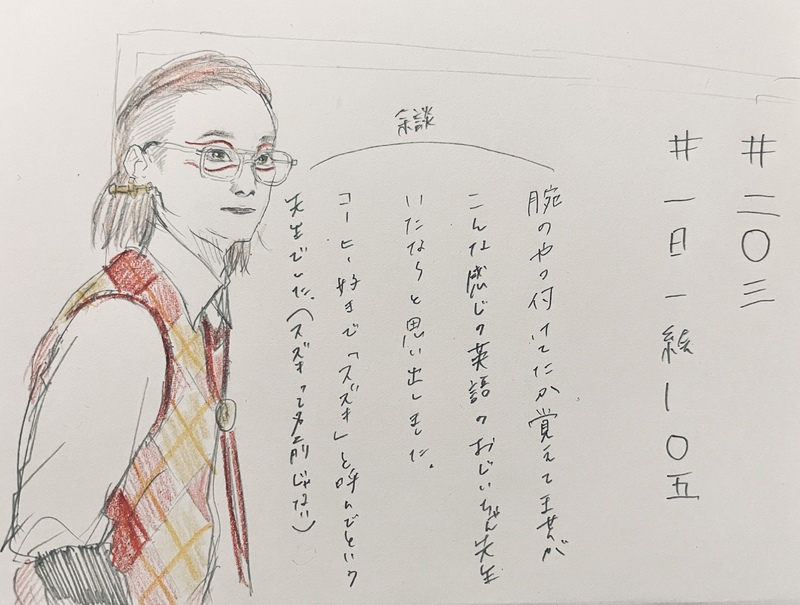 #二〇三
#一日一絵ー〇五
余談
腕のやつ付けてたか覚えてませんが
こんな感じの英語のおじいちゃん先生
いたなぁと思い出しました。
コーヒー好きで「スズキ」と呼んでという
先生でした。(スズキって名前じゃない)